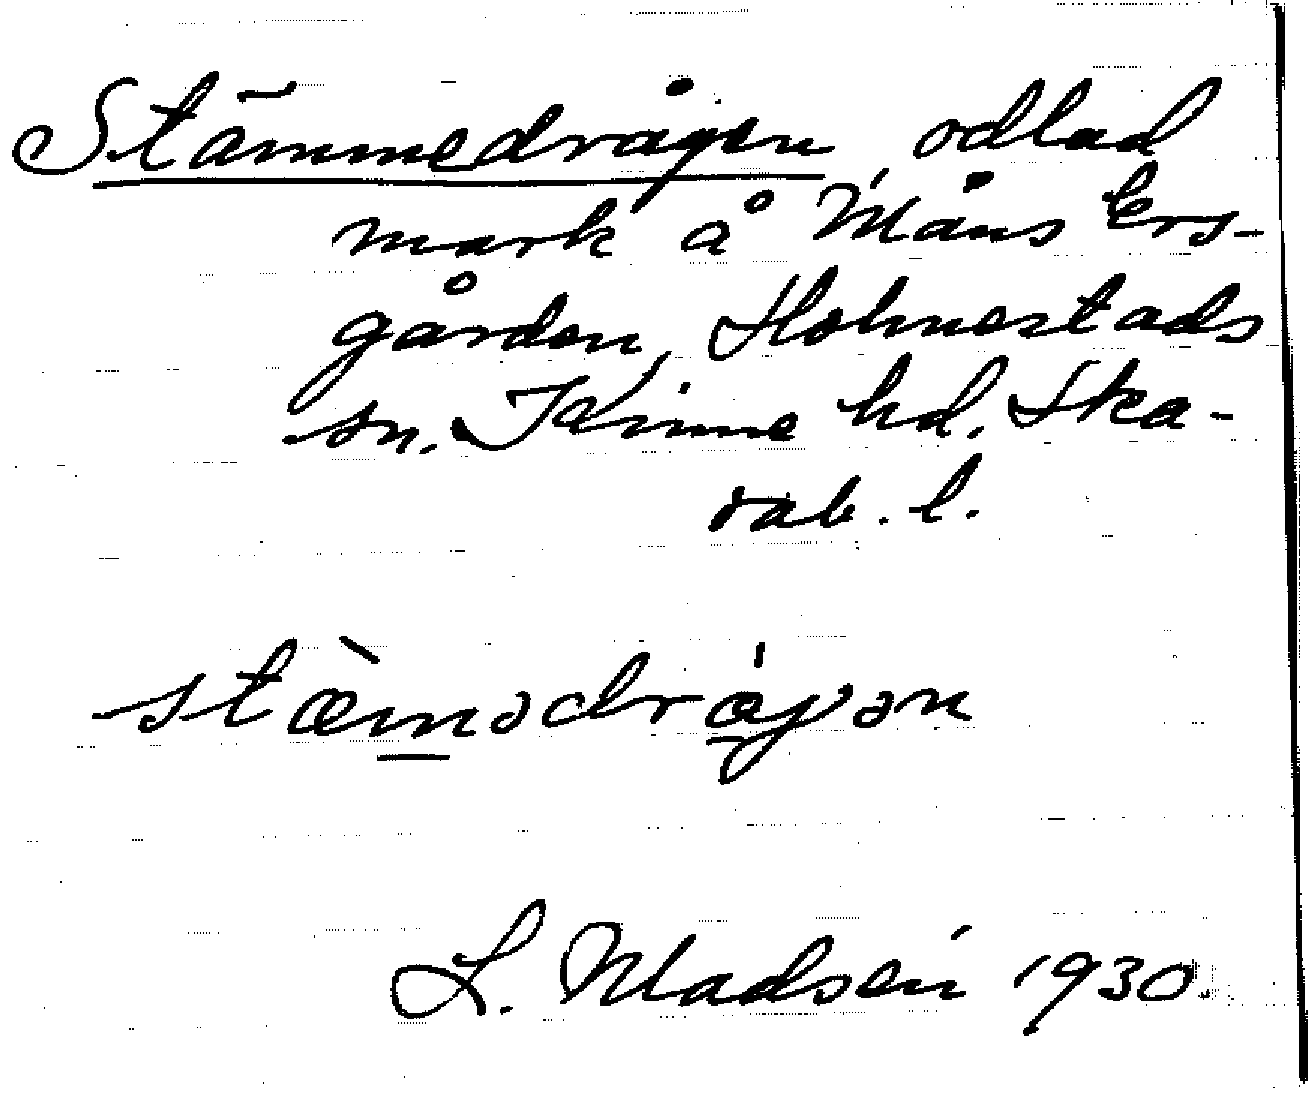 Stämmedrågen, odlad
mark å Måns Ers-
gården, Holmestads
sn. Kinne hd. Ska-
rab. l.
stæ̀mədrågən
L. Madsén 1930.